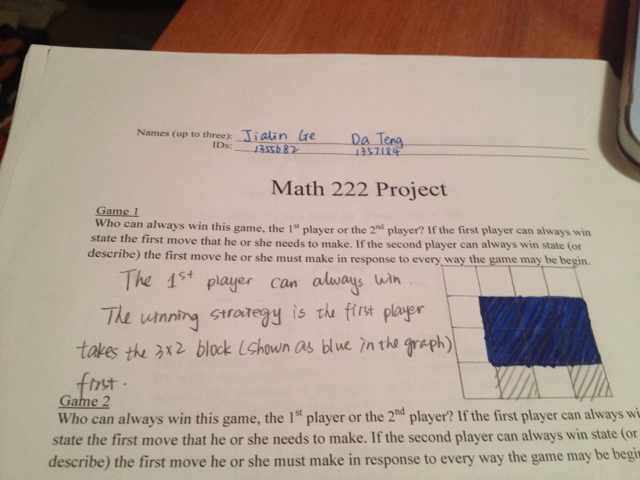 Names (up to three): Jialin Ge Da Teng
IDs: 1355682 1357184
Math 222 Project
Game 1
Who can always win this game, the 1st player or the 2nd player? If the first player can always win
state the first move that he or she needs to make. If the second player can always win state (or
describe) the first move he or she must make in response to every way the game may be begin.
The 1st player can always win.
The winning strategy is the first player
takes the 3x2 block (shown as blue in the graph)
first.
Game 2
Who can always win this game, the 1st player or the 2nd player? If the first player can always wi
state the first move that he or she needs to make. If the second player can always win state (or
describe) the first move he or she must make in response to every way the game may be begi